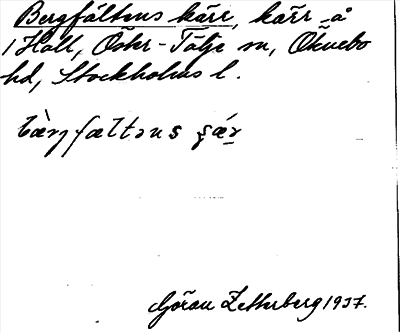 Bergfältens kärr, kärr å
Hall, Öster-Tälje sn, Öknebo
hd, Stockholms l.
bàrjfæltəns çǽr
Göran Zetterberg 1937.